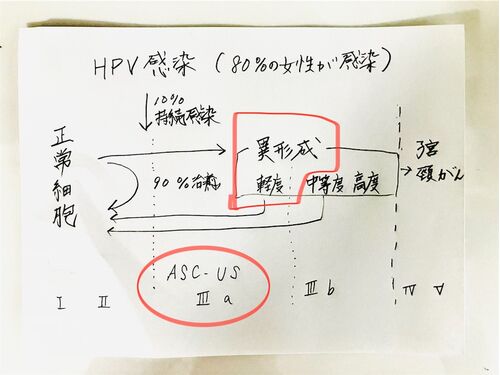 HPV感染（80%の女性が感染）
10%
持続感染
正常細胞
異形成
90%治癒
軽度 中等度 高度
子宮
頸がん
ASC-US
Ⅰ Ⅱ Ⅲa Ⅲb Ⅳ Ⅴ